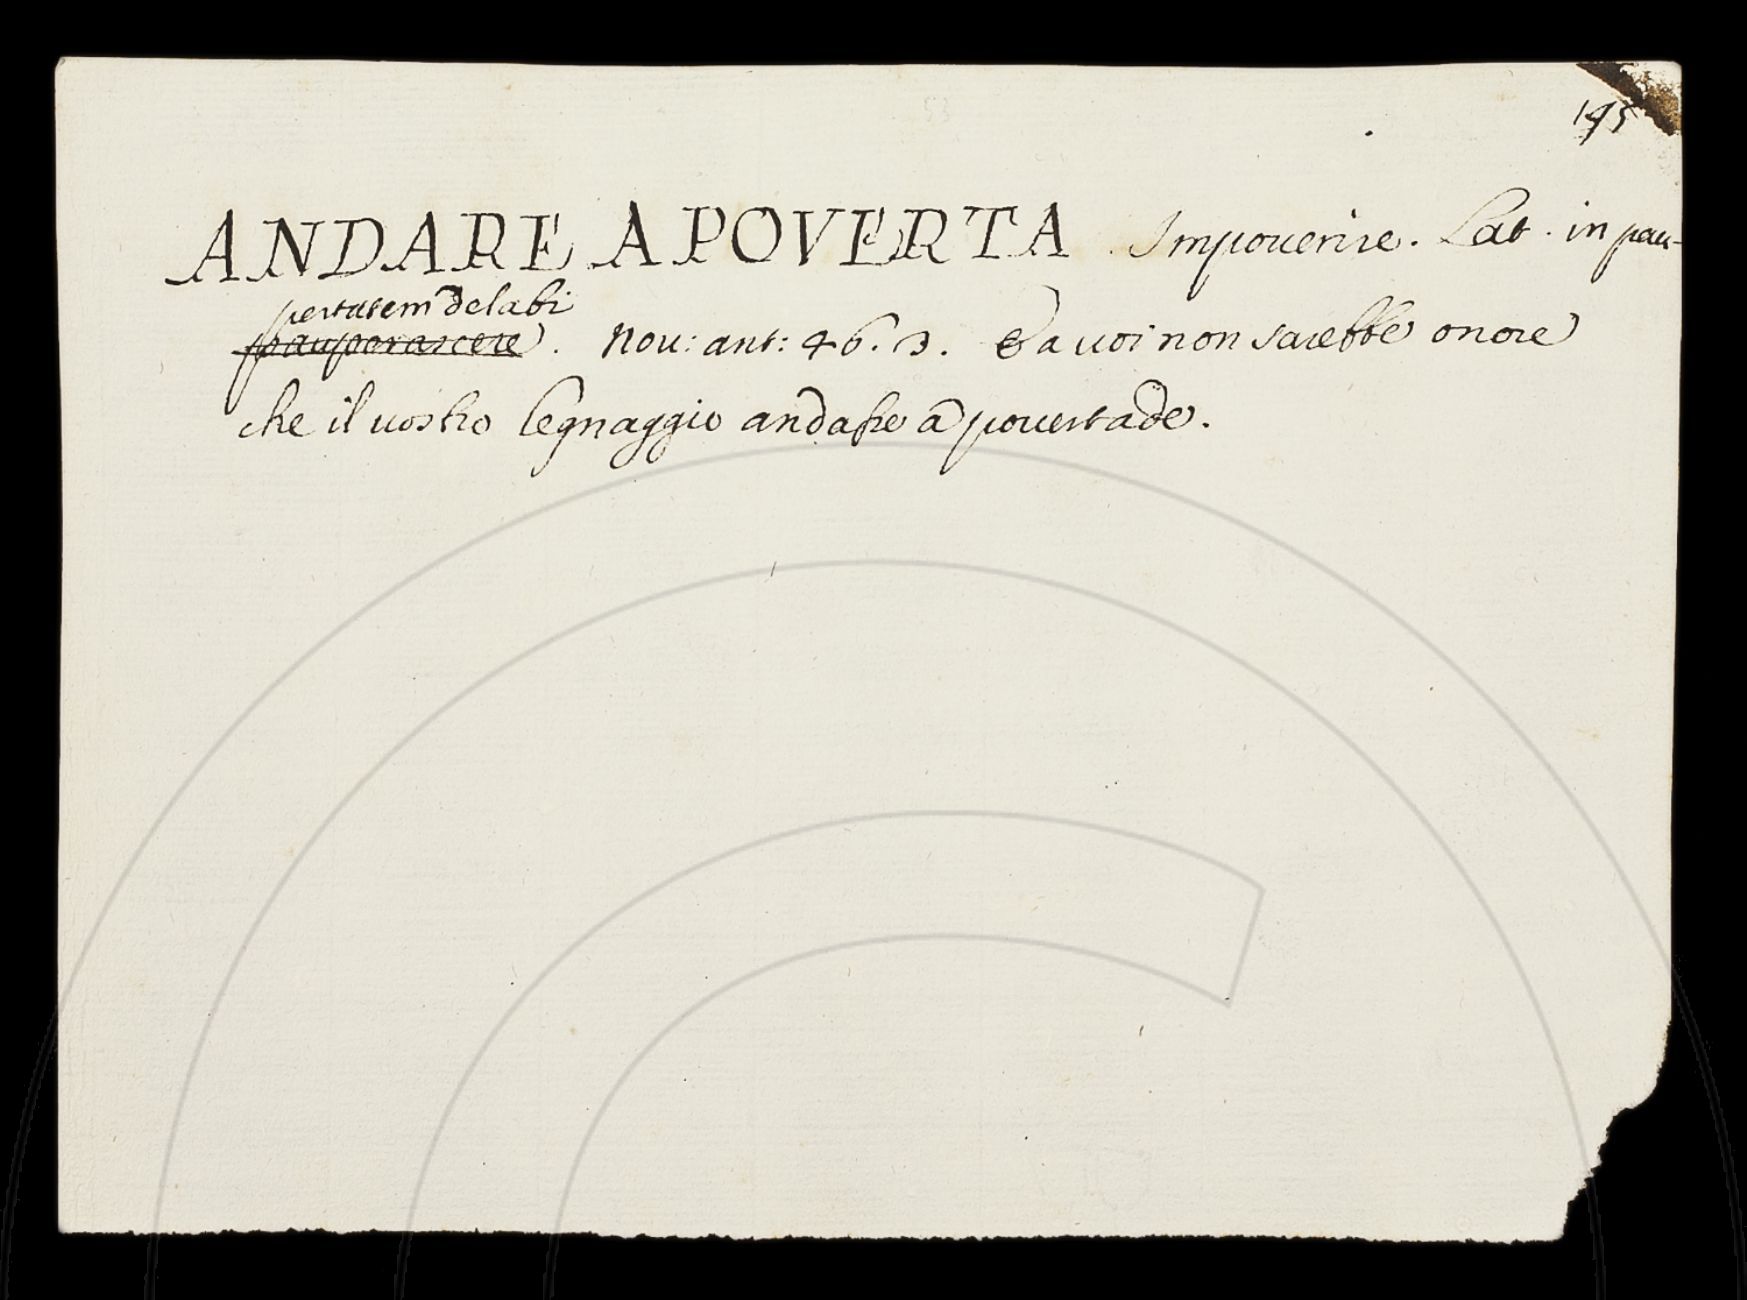 145
ANDARE A POVERTA. Impouerire. Lat. in pau-
pertatem delabi
pauperascere. Nou: ant: 46. 3. E a uoi non sarebbe onore
che il uostro legnaggio andasse a pouertade.